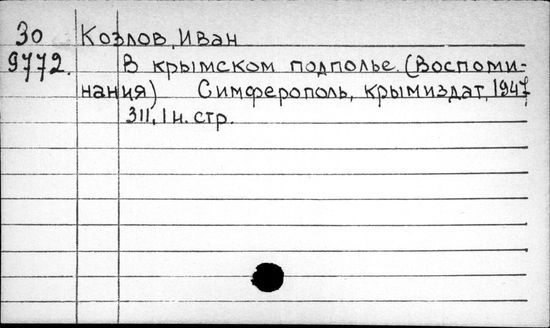 30 Козлов, Иван
9772. В крымском подполье. (Воспоми-
нания) Симферополь, крымиздат, 1947
311, 1 н. стр.